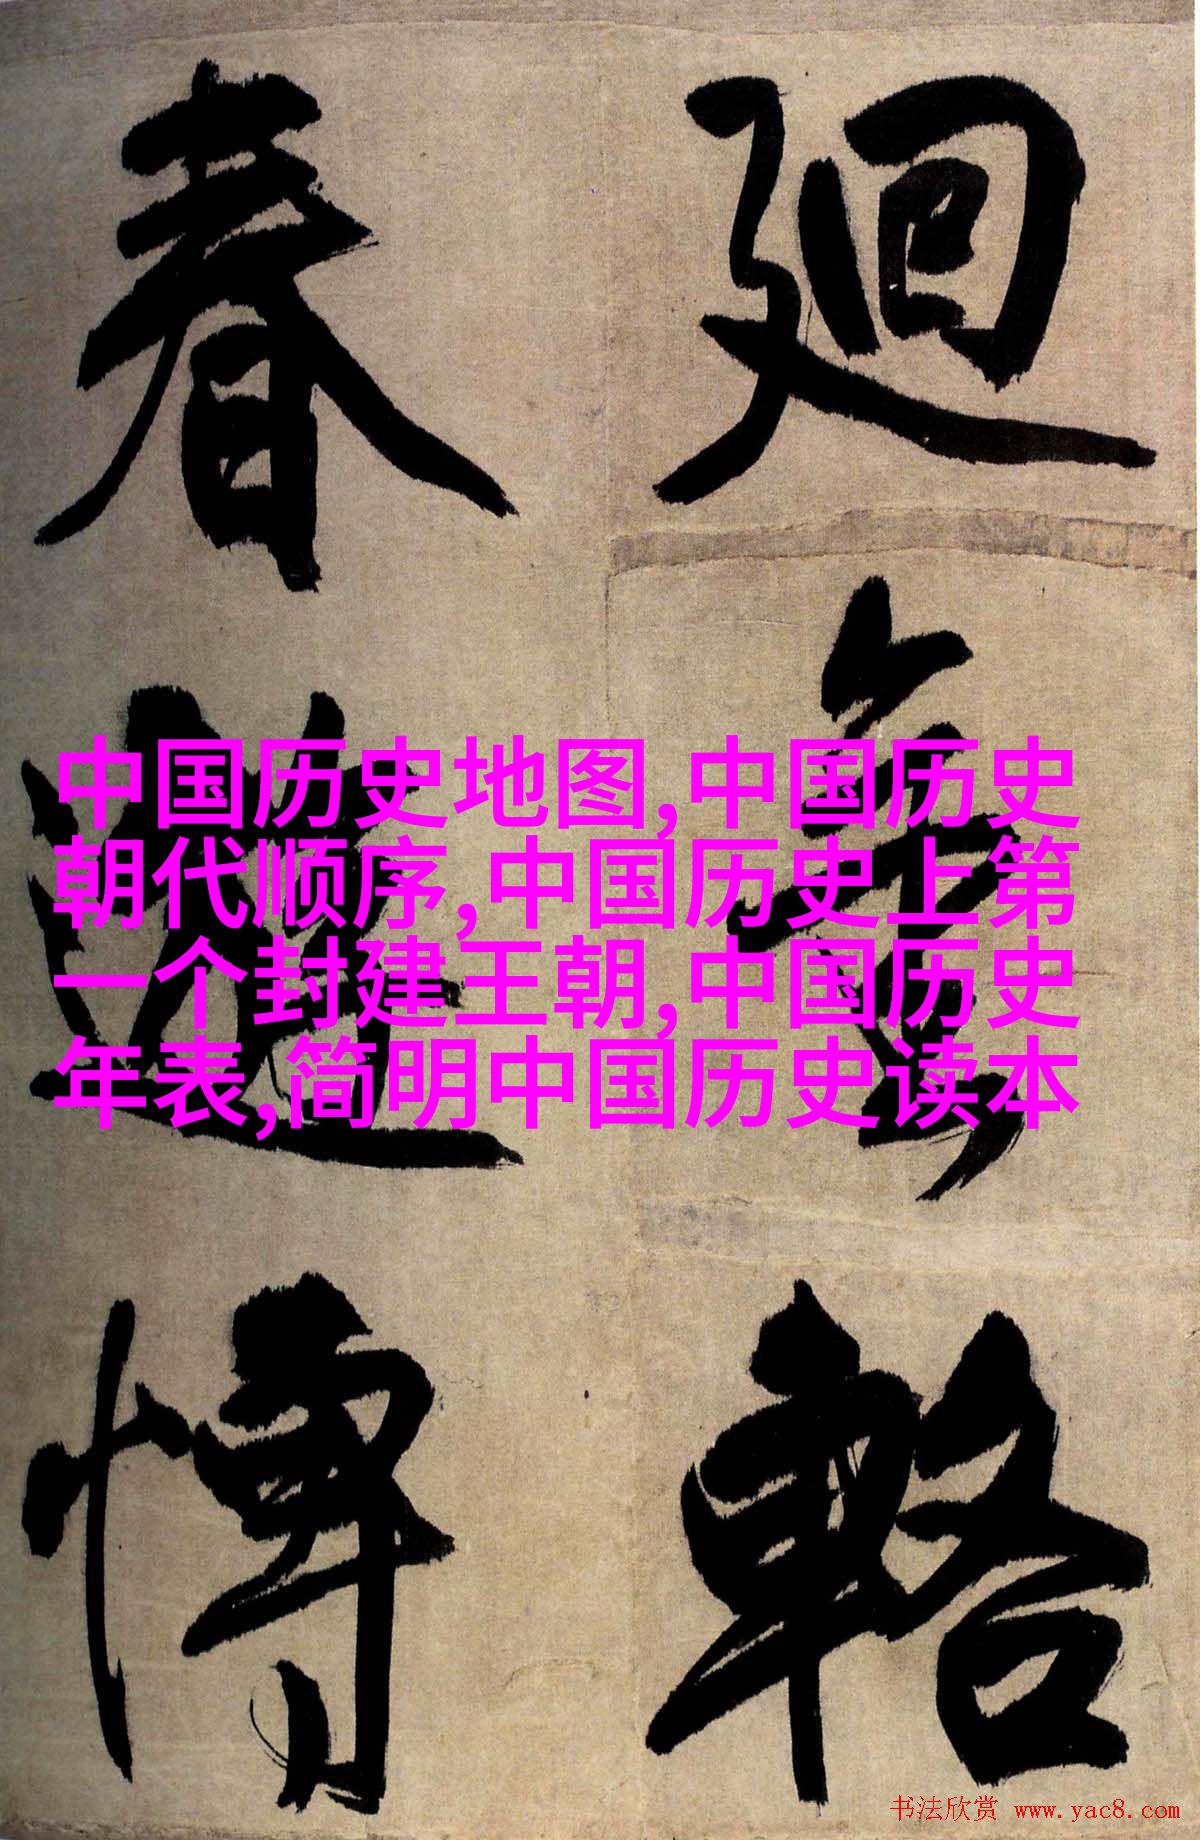 迴輅
春博
中国历史地图,中国历史
朝代顺序,中国历史上第
一个封建王朝,中国历史
年表,简明中国历史读本
书法欣赏 www.yac8.com